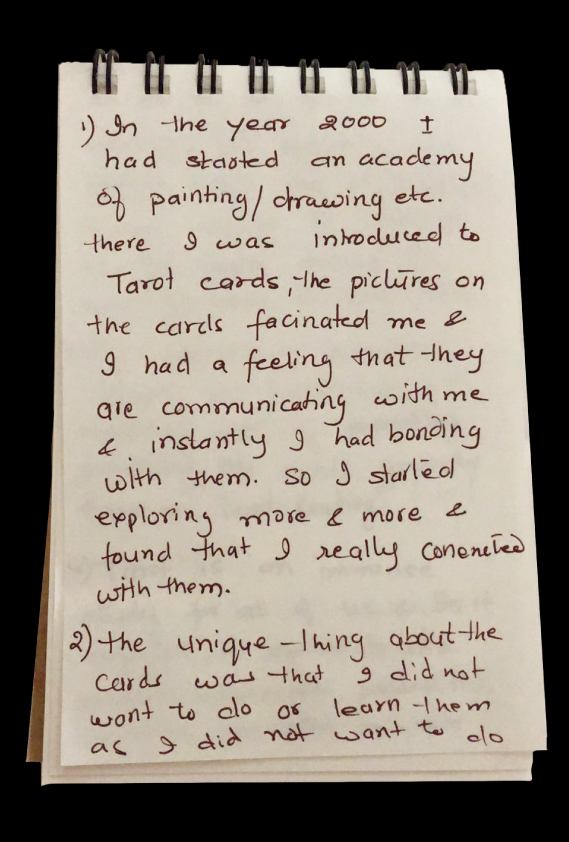 1) In the year 2000 I
had started an academy
of painting/drawing etc.
there I was introduced to
Tarot cards, the pictures on
the cards facinated me &
I had a feeling that they
are communicating with me
& instantly I had bonding
with them. So I started
exploring more & more &
found that I really conencted
with them.
2) the unique thing about the
Cards was that I did not
want to do or learn them
as I did not want to do